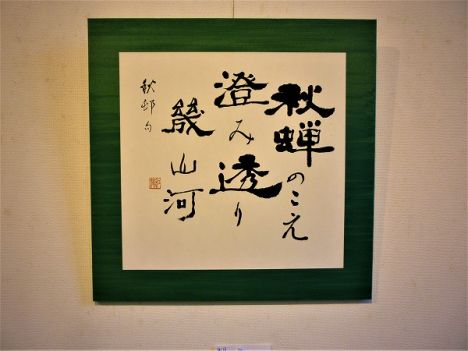 秋蝉のこえ
澄み透り
幾山河
秋邨句